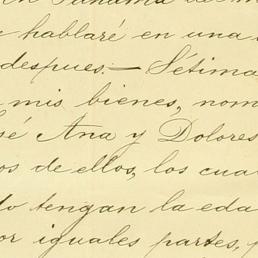 en Panamá
hablaré en una
despues.— Sétima
mis bienes, nom
sé Ana y Dolores
os de ellos, los cua
do tengan la eda
or iguales partes, p